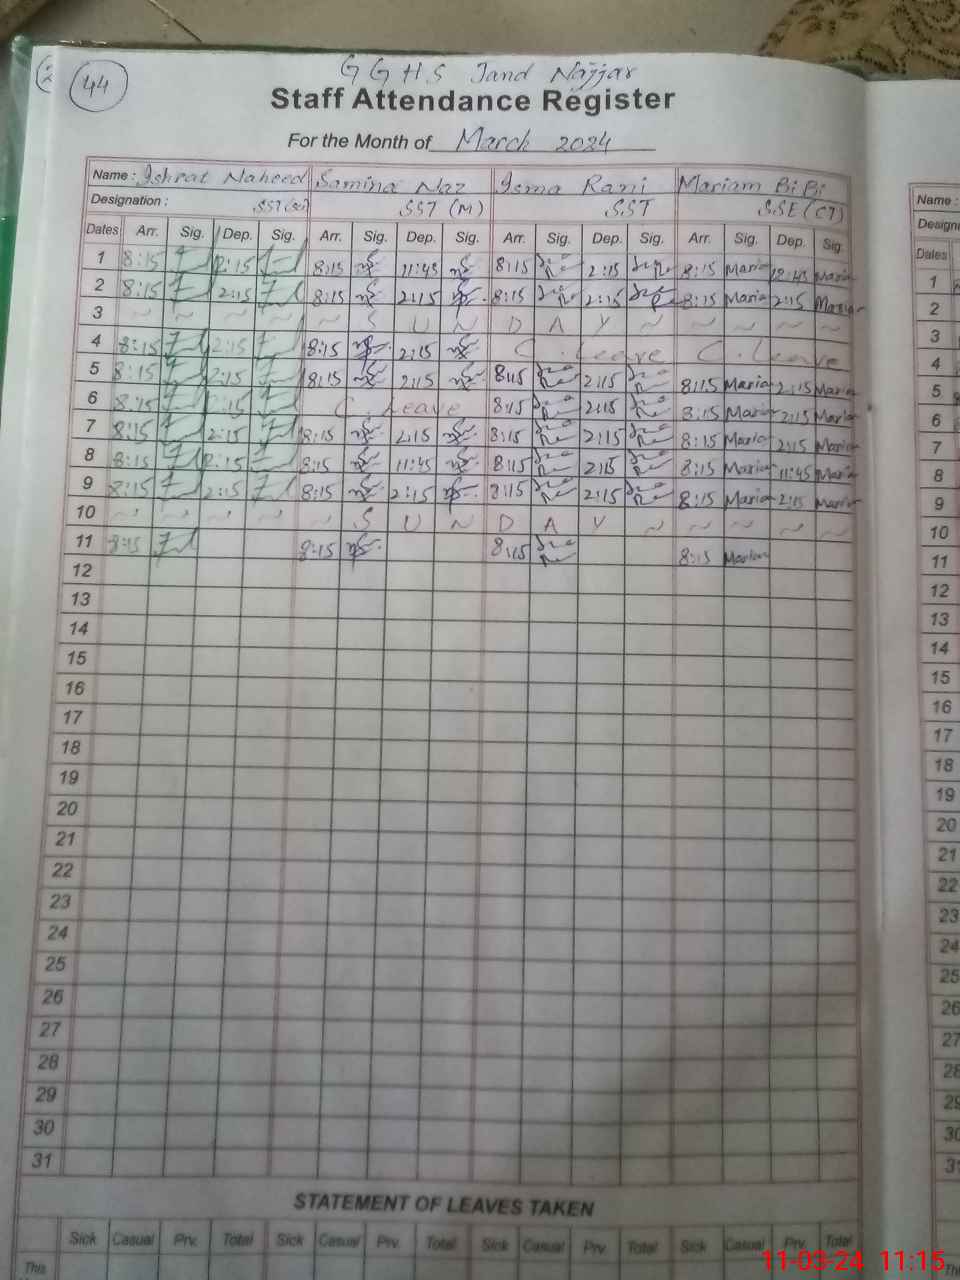 44
G G H S Jand Najjar
Staff Attendance Register
For the Month of March 2024
Name : Ishrat Naheed Samina Naz Isma Rani Mariam BiBi Name :
Designation : SST(Sci) SST (M) SST SSE(CT)
Dates Arr. Sig. Dep. Sig. Arr. Sig. Dep. Sig. Arr. Sig. Dep. Sig. Arr. Sig. Dep. Sig. Dates
1 8:15 2:15 8:15 11:45 8:15 2:15 8:15 Maria 12:45 Maria 1
2 8:15 2:15 8:15 2:15 8:15 2:15 8:15 Maria 2:15 Maria 2
3 ~ ~ ~ ~ ~ S U N D A Y ~ ~ ~ ~ ~ 3
4 8:15 2:15 8:15 2:15 C. Leave C. Leave 4
5 8:15 2:15 8:15 2:15 8:15 2:15 8:15 Maria 2:15 Maria 5
6 8:15 2:15 C. Leave 8:15 2:15 8:15 Maria 2:15 Maria 6
7 8:15 2:15 8:15 2:15 8:15 2:15 8:15 Maria 2:15 Maria 7
8 8:15 2:15 8:15 11:45 8:15 2:15 8:15 Maria 11:45 Maria 8
9 8:15 2:15 8:15 2:15 8:15 2:15 8:15 Maria 2:15 Maria 9
10 ~ ~ ~ ~ ~ S U N D A Y ~ ~ ~ ~ ~ 10
11 8:15 8:15 8:15 8:15 Mariam 11
12 12
13 13
14 14
15 15
16 16
17 17
18 18
19 19
20 20
21 21
22 22
23 23
24 24
25 25
26 26
27 27
28 28
29 29
30 30
31 31
STATEMENT OF LEAVES TAKEN
Sick Casual Prv. Total Sick Casual Prv. Total Sick Casual Prv. Total Sick Casual Prv. Total
This
11-03-24 11:15